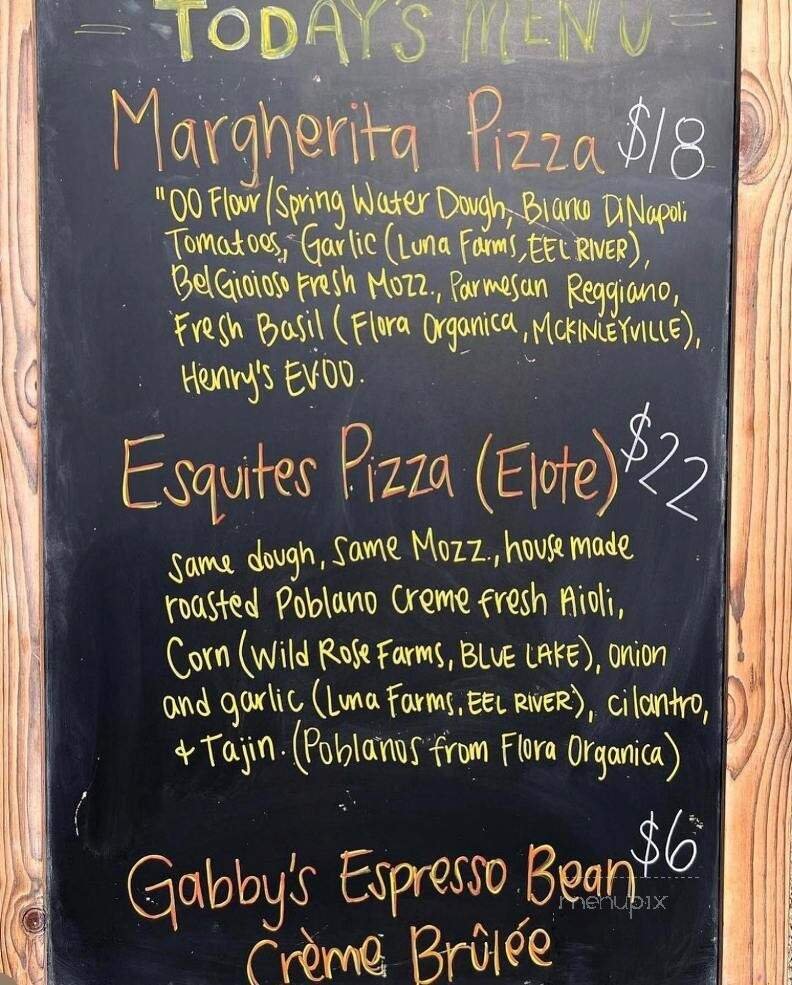 = TODAY'S MENU =
Margherita Pizza $18
"00 Flour/Spring Water Dough, Bianco DiNapoli
Tomatoes, Garlic (Luna Farms, EEL RIVER),
BelGioioso Fresh Mozz., Parmesan Reggiano,
Fresh Basil (Flora Organica, MCKINLEYVILLE),
Henry's EVOO.
Esquites Pizza (Elote) $22
same dough, same Mozz., house made
roasted Poblano creme fresh Aioli,
Corn (Wild Rose Farms, BLUE LAKE), onion
and garlic (Luna Farms, EEL RIVER), cilantro,
+ Tajin. (Poblanos from Flora Organica)
Gabby's Espresso Bean $6
Crème Brûlée
menupix